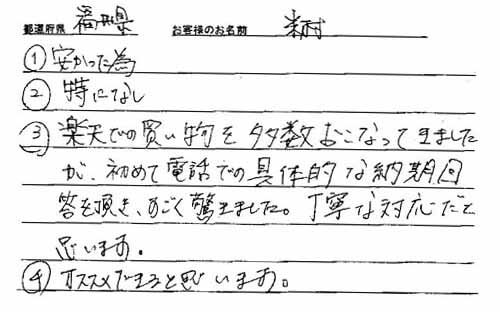 都道府県 福岡県 お客様のお名前 米村
①安かった為
②特になし
③楽天での買い物を多数おこなってきました
が、初めて電話での具体的な納期回
答を頂き、すごく驚きました。丁寧な対応だと
思います。
④オススメできると思います。